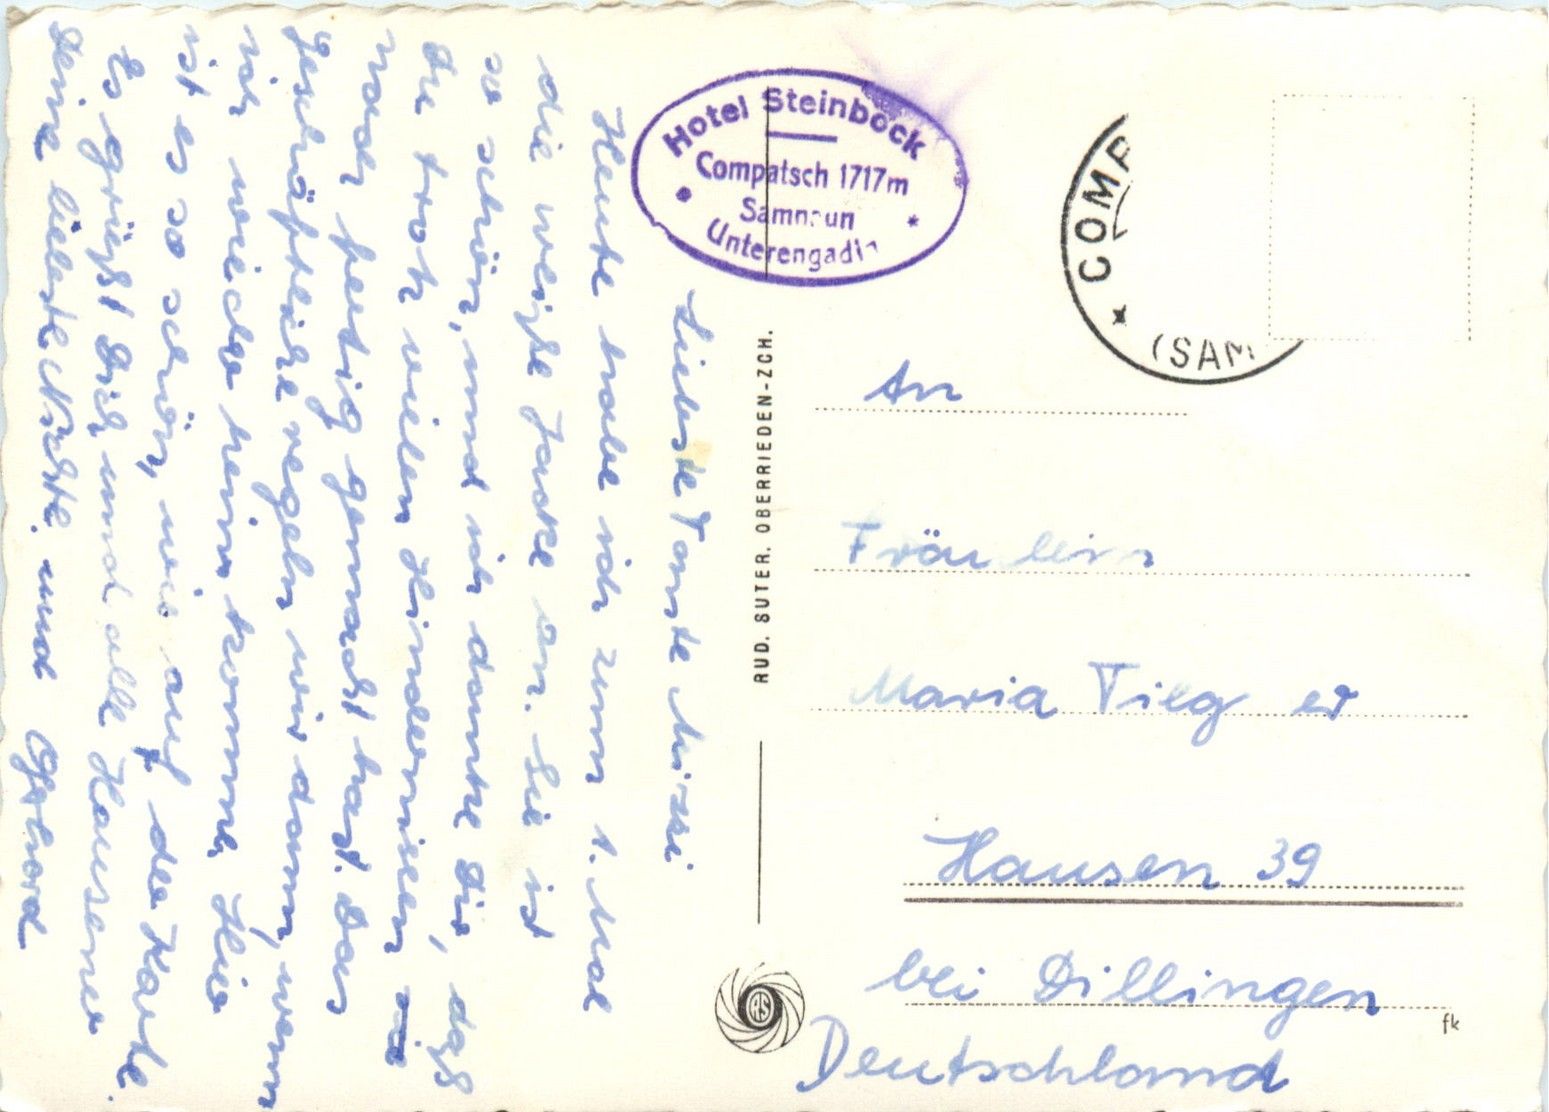 Liebste Tante Mirzi
Heute habe ich zum 1. Mal
die weiße Jacke an. Sie ist
so schön, und ich danke Dir, daß
Du trotz vielen Hindernissen sie
noch fertig gemacht hast. Das
Geschäftliche regeln wir dann, wenn
ich wieder heim komme. Hier
ist es so schön, wie auf der Karte.
Es grüßt Dich und alle Hausener
Deine liebste Nichte und Gerhard
Hotel Steinbock
Compatsch 1717m
Samnaun
Unterengadin
RUD. SUTER, OBERRIEDEN-ZCH.
RS
* COMP
(SAM
An
Fräulein
Maria Tieg er
Hausen 39
bei Dillingen
Deutschland
fk